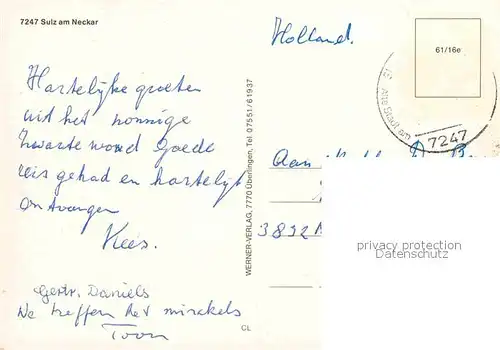 7247 Sulz am Neckar
Hartelijke groeten
uit het zonnige
Zwarte woud Goede
reis gehad en hartelijk
ontvangen
Kees.
Gertr. Daniels
We treffen het mirakels
Toon
CL
WERNER-VERLAG, 7770 Überlingen, Tel: 07551/61937
Holland.
61/16e
Alte Stadt am
7247
Aan
3892
privacy protection
Datenschutz